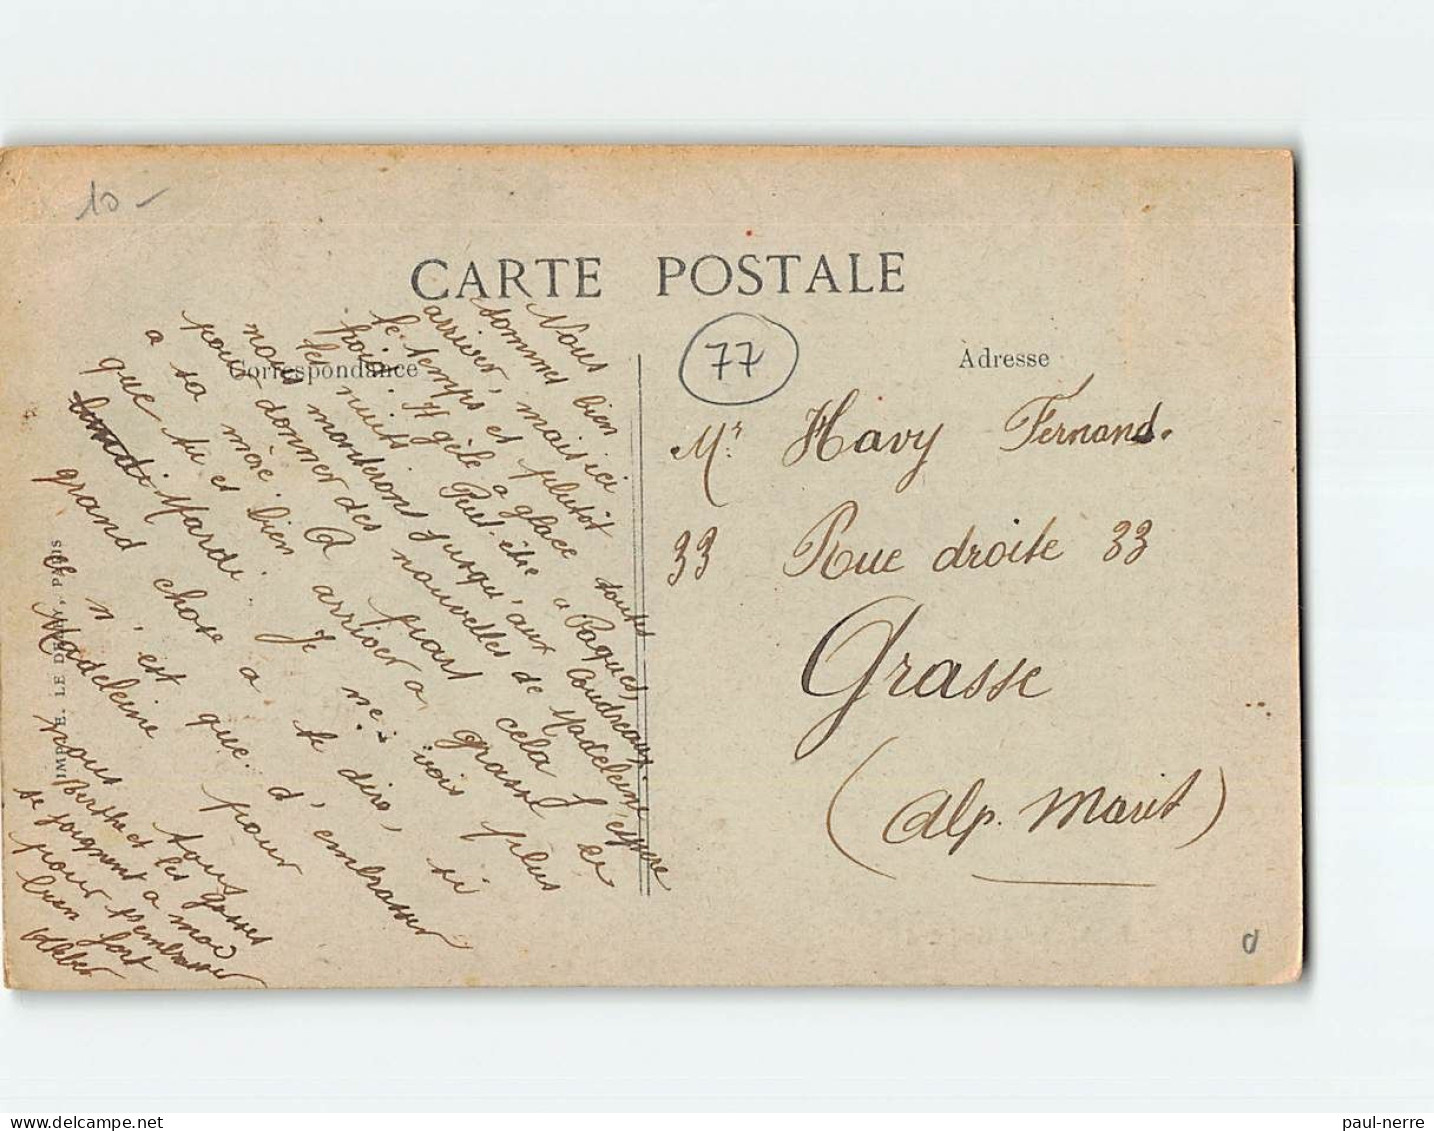 10 -
CARTE POSTALE
Correspondance
77
Adresse
Nous
sommes bien
arriver, mais ici
le temps est plutôt
froid. Il gèle a glace toutes
les nuits. Peut-être a Paques,
nous monterons jusqu'aux Coudreaux
pour donner des nouvelles de Madeleine
a sa mère. A part cela j'espère
que tu es bien arriver a Grasse ce
Mardi. Je ne vois plus
grand chose a te dire, si
ce n'est que d'embrasser
Madeleine pour
nous tous
Berthe et les gosses
se joignent a moi
pour t'embrasser
bien fort
Mr. Havy Fernand.
33 Rue droite 33
Grasse
(Alp. Marit)
IMP. E. LE DELEY, PARIS
paul-nerre